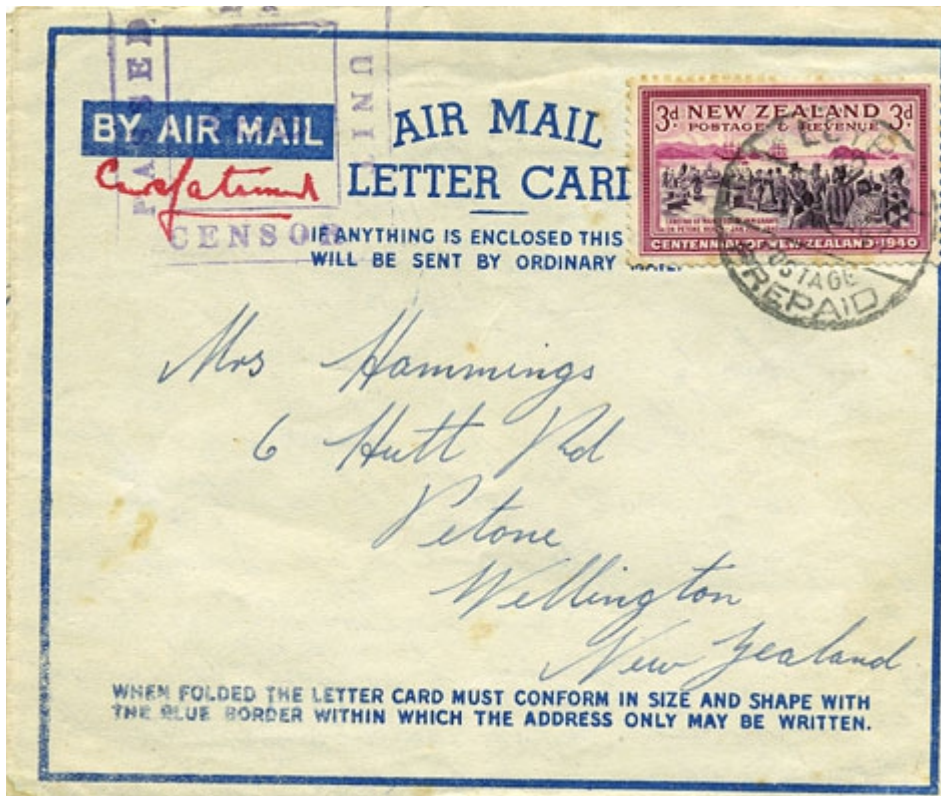 PASSED
UNIT
CENSOR
BY AIR MAIL
AIR MAIL
LETTER CARD
IF ANYTHING IS ENCLOSED THIS
WILL BE SENT BY ORDINARY MAIL.
3d NEW ZEALAND 3d
POSTAGE & REVENUE
CENTENNIAL OF NEW ZEALAND·1940
POSTAGE
PREPAID
Mrs Hammings
6 Hutt Rd
Petone
Wellington
New Zealand.
WHEN FOLDED THE LETTER CARD MUST CONFORM IN SIZE AND SHAPE WITH
THE BLUE BORDER WITHIN WHICH THE ADDRESS ONLY MAY BE WRITTEN.